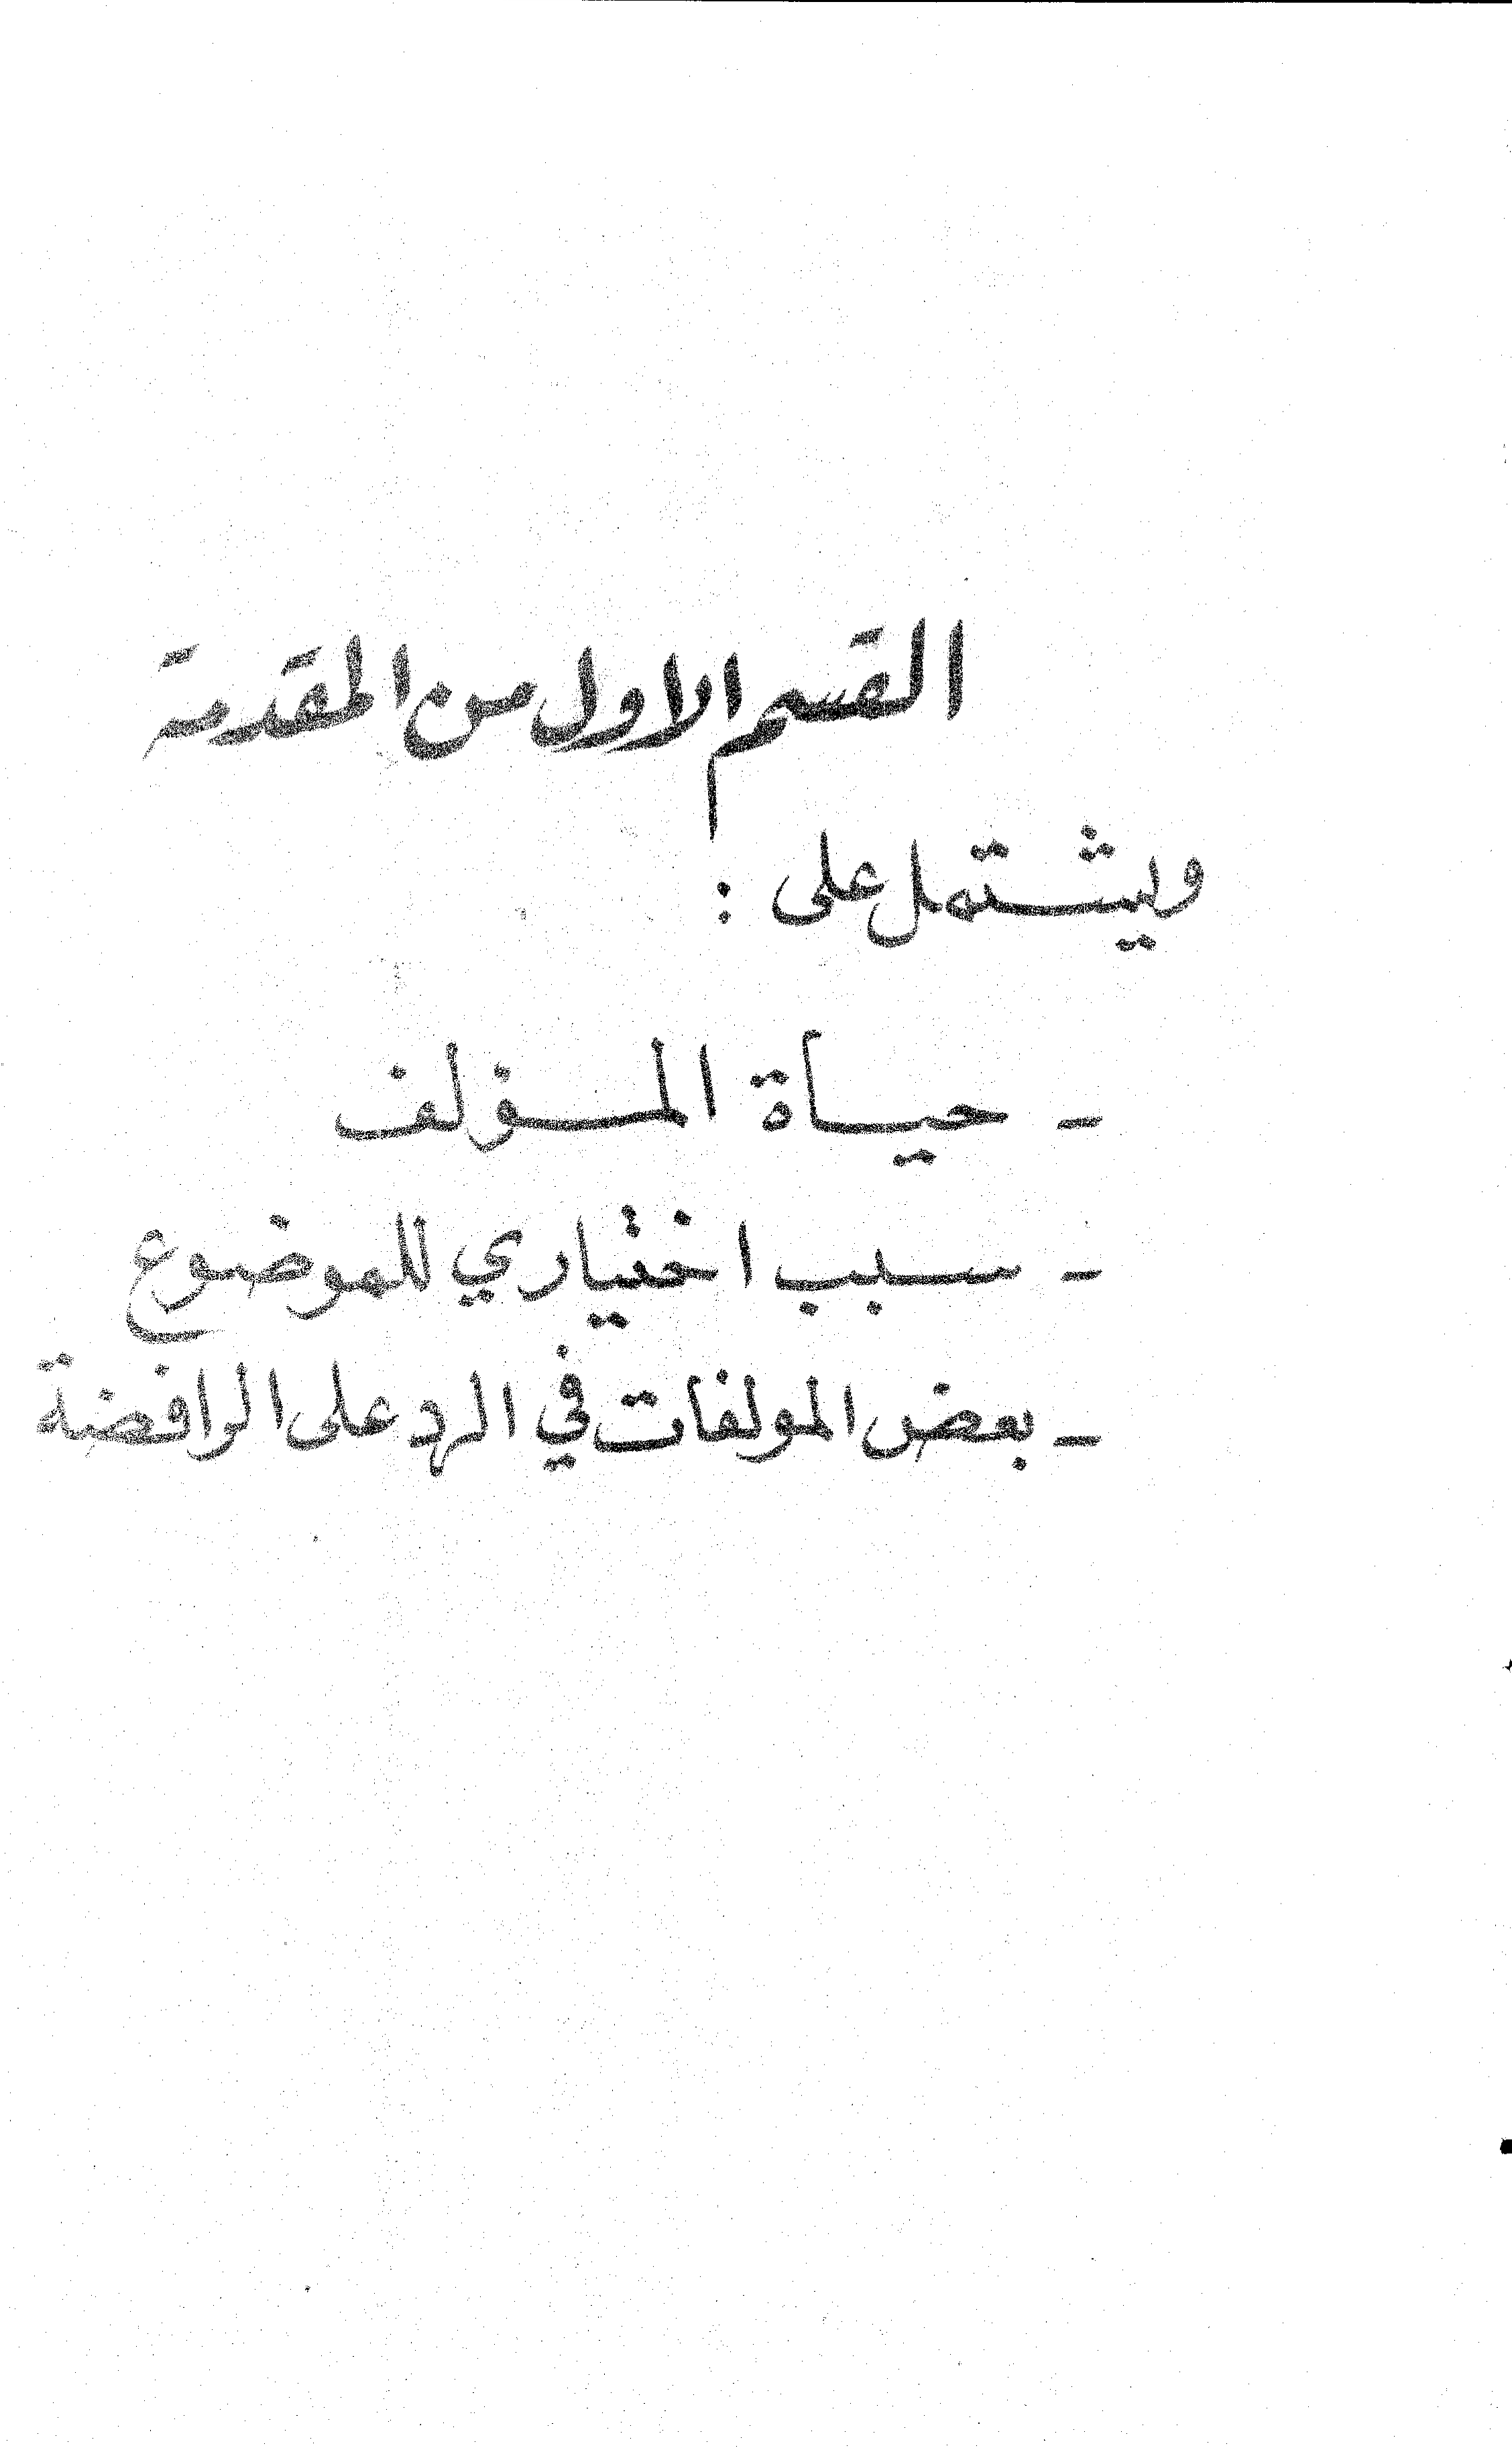 القسم الاول من المقدمة
ويشتمل على :
- حياة المؤلف
- سبب اختياري للموضوع
- بعض المولفات في الرد على الرافضة